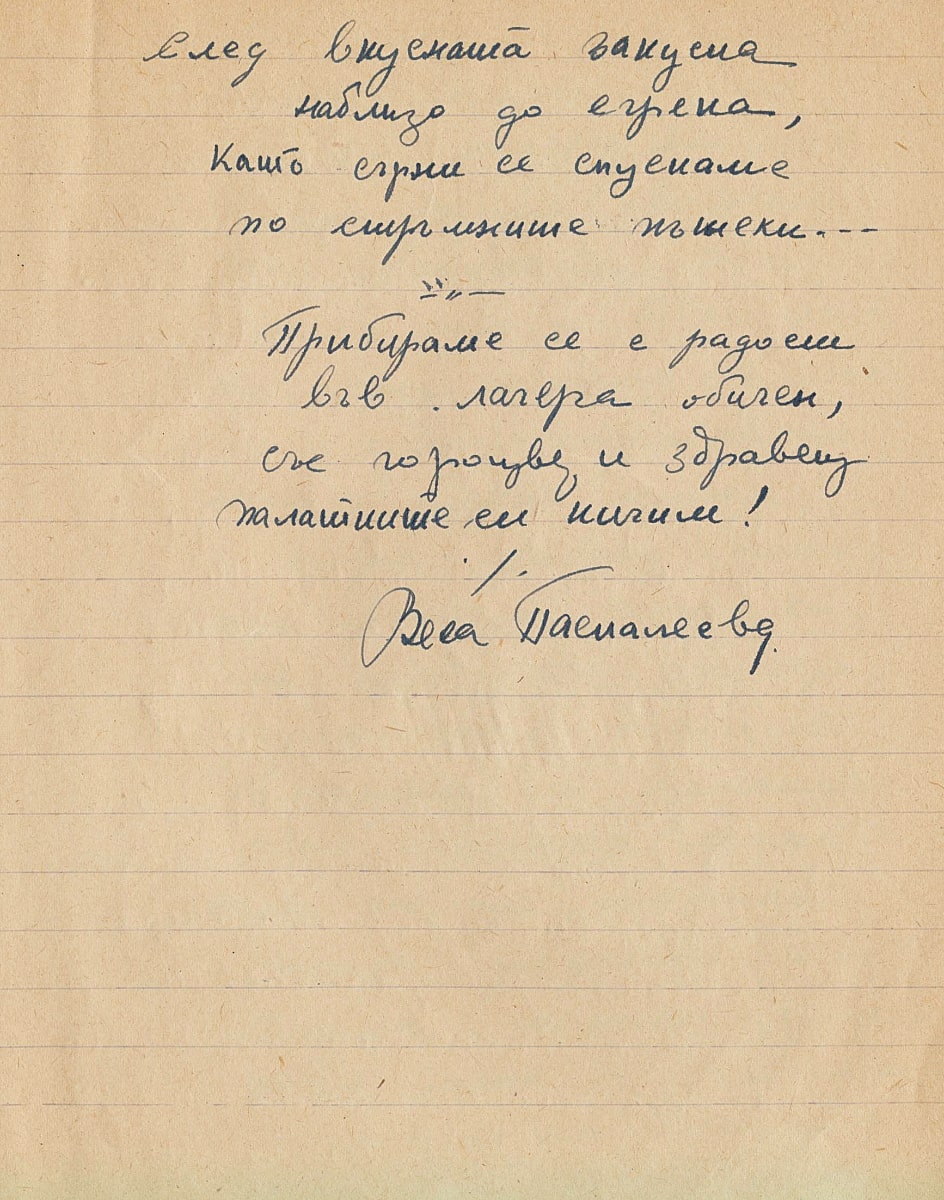 След вкусната закуска
наблизо до егрека,
Като сърни се спускаме
по стръмните пътеки...
Прибираме се с радост
във лагера обичен,
със гороцвец и здравец
палатките си кичим!
Веса Паспалеева